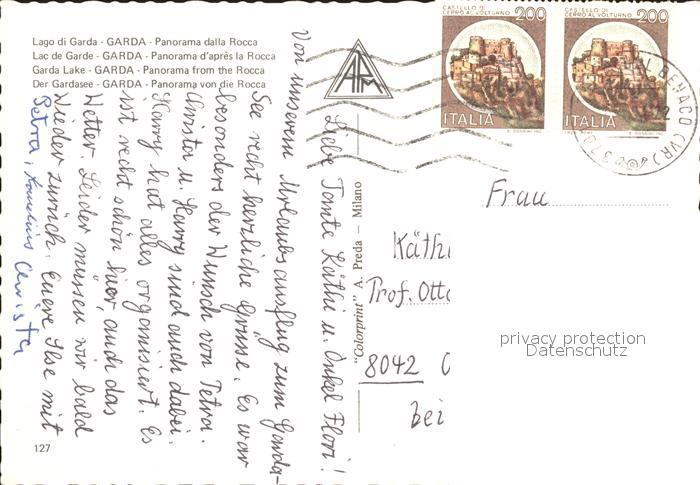 Lago di Garda - GARDA - Panorama dalla Rocca
Lac de Garde - GARDA - Panorama d'après la Rocca
Garda Lake - GARDA - Panorama from the Rocca
Der Gardasee - GARDA - Panorama von die Rocca
Liebe Tante Käthi u. Onkel Flori!
Von unserem Urlaubsausflug zum Garda-
See recht herzliche Grüsse. Es war
besonders der Wunsch von Petra.
Christa u. Harry sind auch dabei.
Harry hat alles organisiert. Es
ist recht schön hier, auch das
Wetter. Leider müssen wir bald
wieder zurück. Euere Ilse mit
Petra, Kornelius Christa
127
"Colorprint" A. Preda — Milano
CASTELLO DI
CERRO AL VOLTURNO 200
ITALIA
CASTELLO DI
CERRO AL VOLTURNO 200
ITALIA
BENACO (VR)
Frau
Käthi
Prof. Otto
8042
bei
privacy protection
Datenschutz